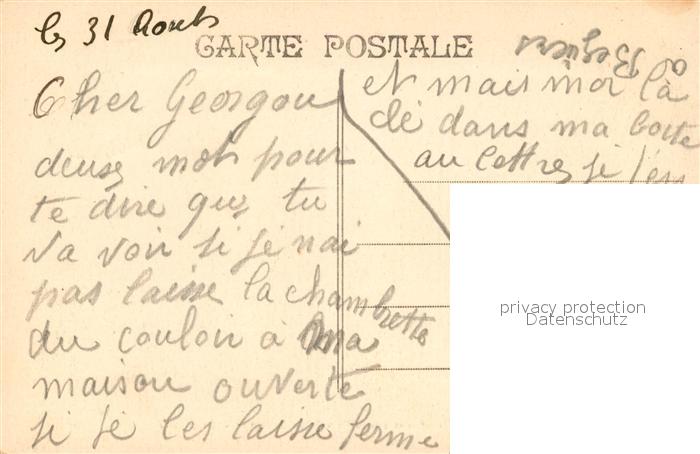 le 31 Aout
CARTE POSTALE
Cher Georgou
deuse mot pour
te dire que tu
va voir si je nai
pas laisse la chambrette
du couloir a ma
maison ouverte
si je les laisse ferme
et mais moi là
clé dans ma boite
au lettres si l'ess
privacy protection
Datenschutz